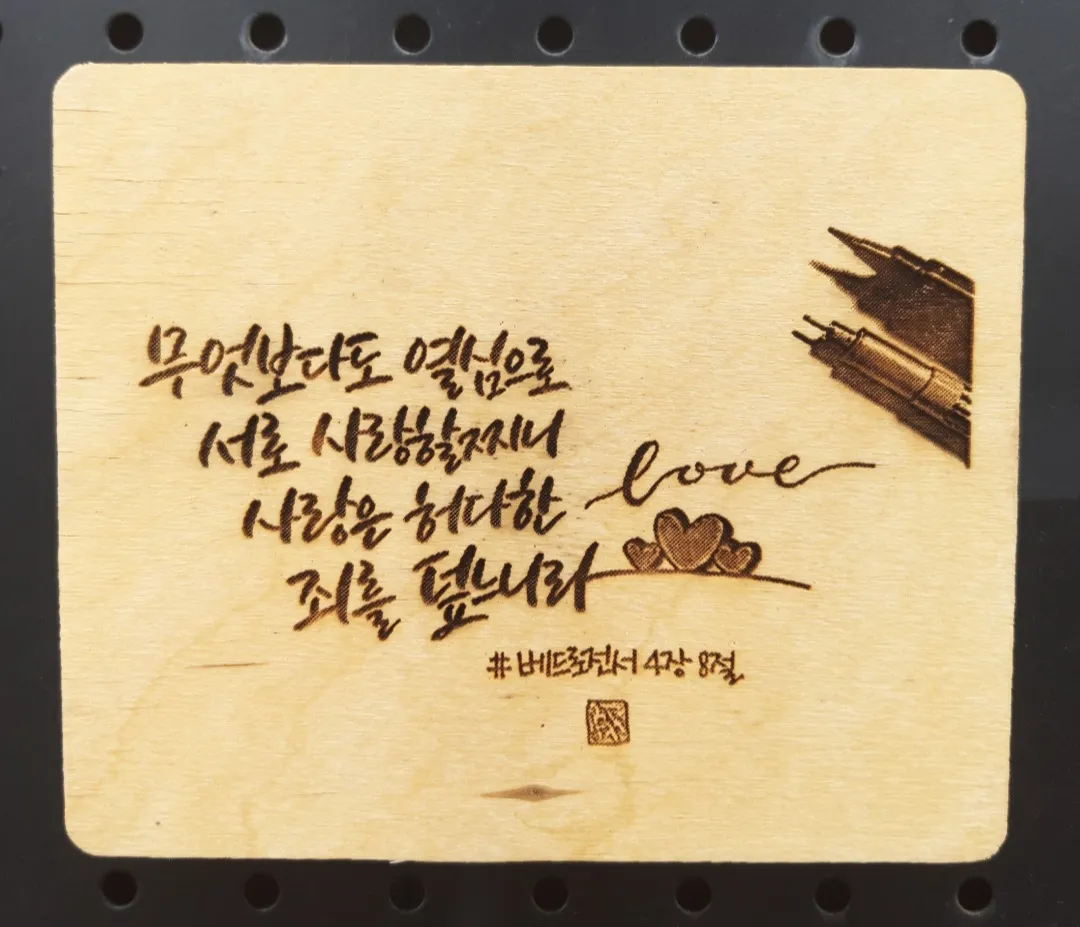 무엇보다도 열심으로
서로 사랑할찌니
사랑은 허다한
죄를 덮느니라
love
#베드로전서 4장 8절